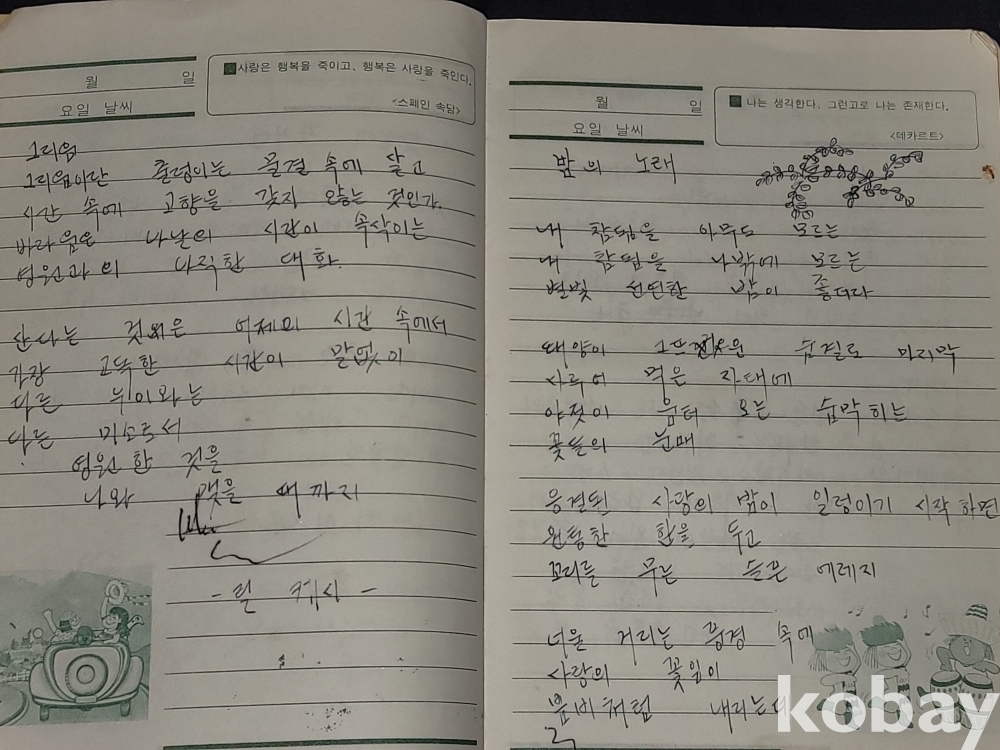 월 일
요일 날씨
사랑은 행복을 죽이고, 행복은 사랑을 죽인다.
<스페인 속담>
그리움
그리움이란 출렁이는 물결 속에 살고
시간 속에 고향을 갖지 않는 것인가.
바라움은 나날의 시간이 속삭이는
영원과의 나직한 대화.
산다는 것은 어제의 시간 속에서
가장 고독한 시간이 말없이
다른 누이와는
다른 미소로서
영원한 것을
나와 맺을 때까지
- 릴케시 -
월 일
요일 날씨
나는 생각한다. 그런고로 나는 존재한다.
<데카르트>
밤의 노래
내 참됨을 아무도 모르는
내 참됨을 나밖에 모르는
별빛 선연한 밤이 좋더라
태양이 숨결로 마지막
사루어 먹은 자태에
야젓이 움터 오는 숨막히는
꽃들의 눈매
응결된 사랑의 밤이 일렁이기 시작하면
완당한 한을 두고
꼬리를 무는 슬픈 에레지
너울 거리는 풍경 속에
사랑의 꽃잎이
봄비처럼 내리는
kobay